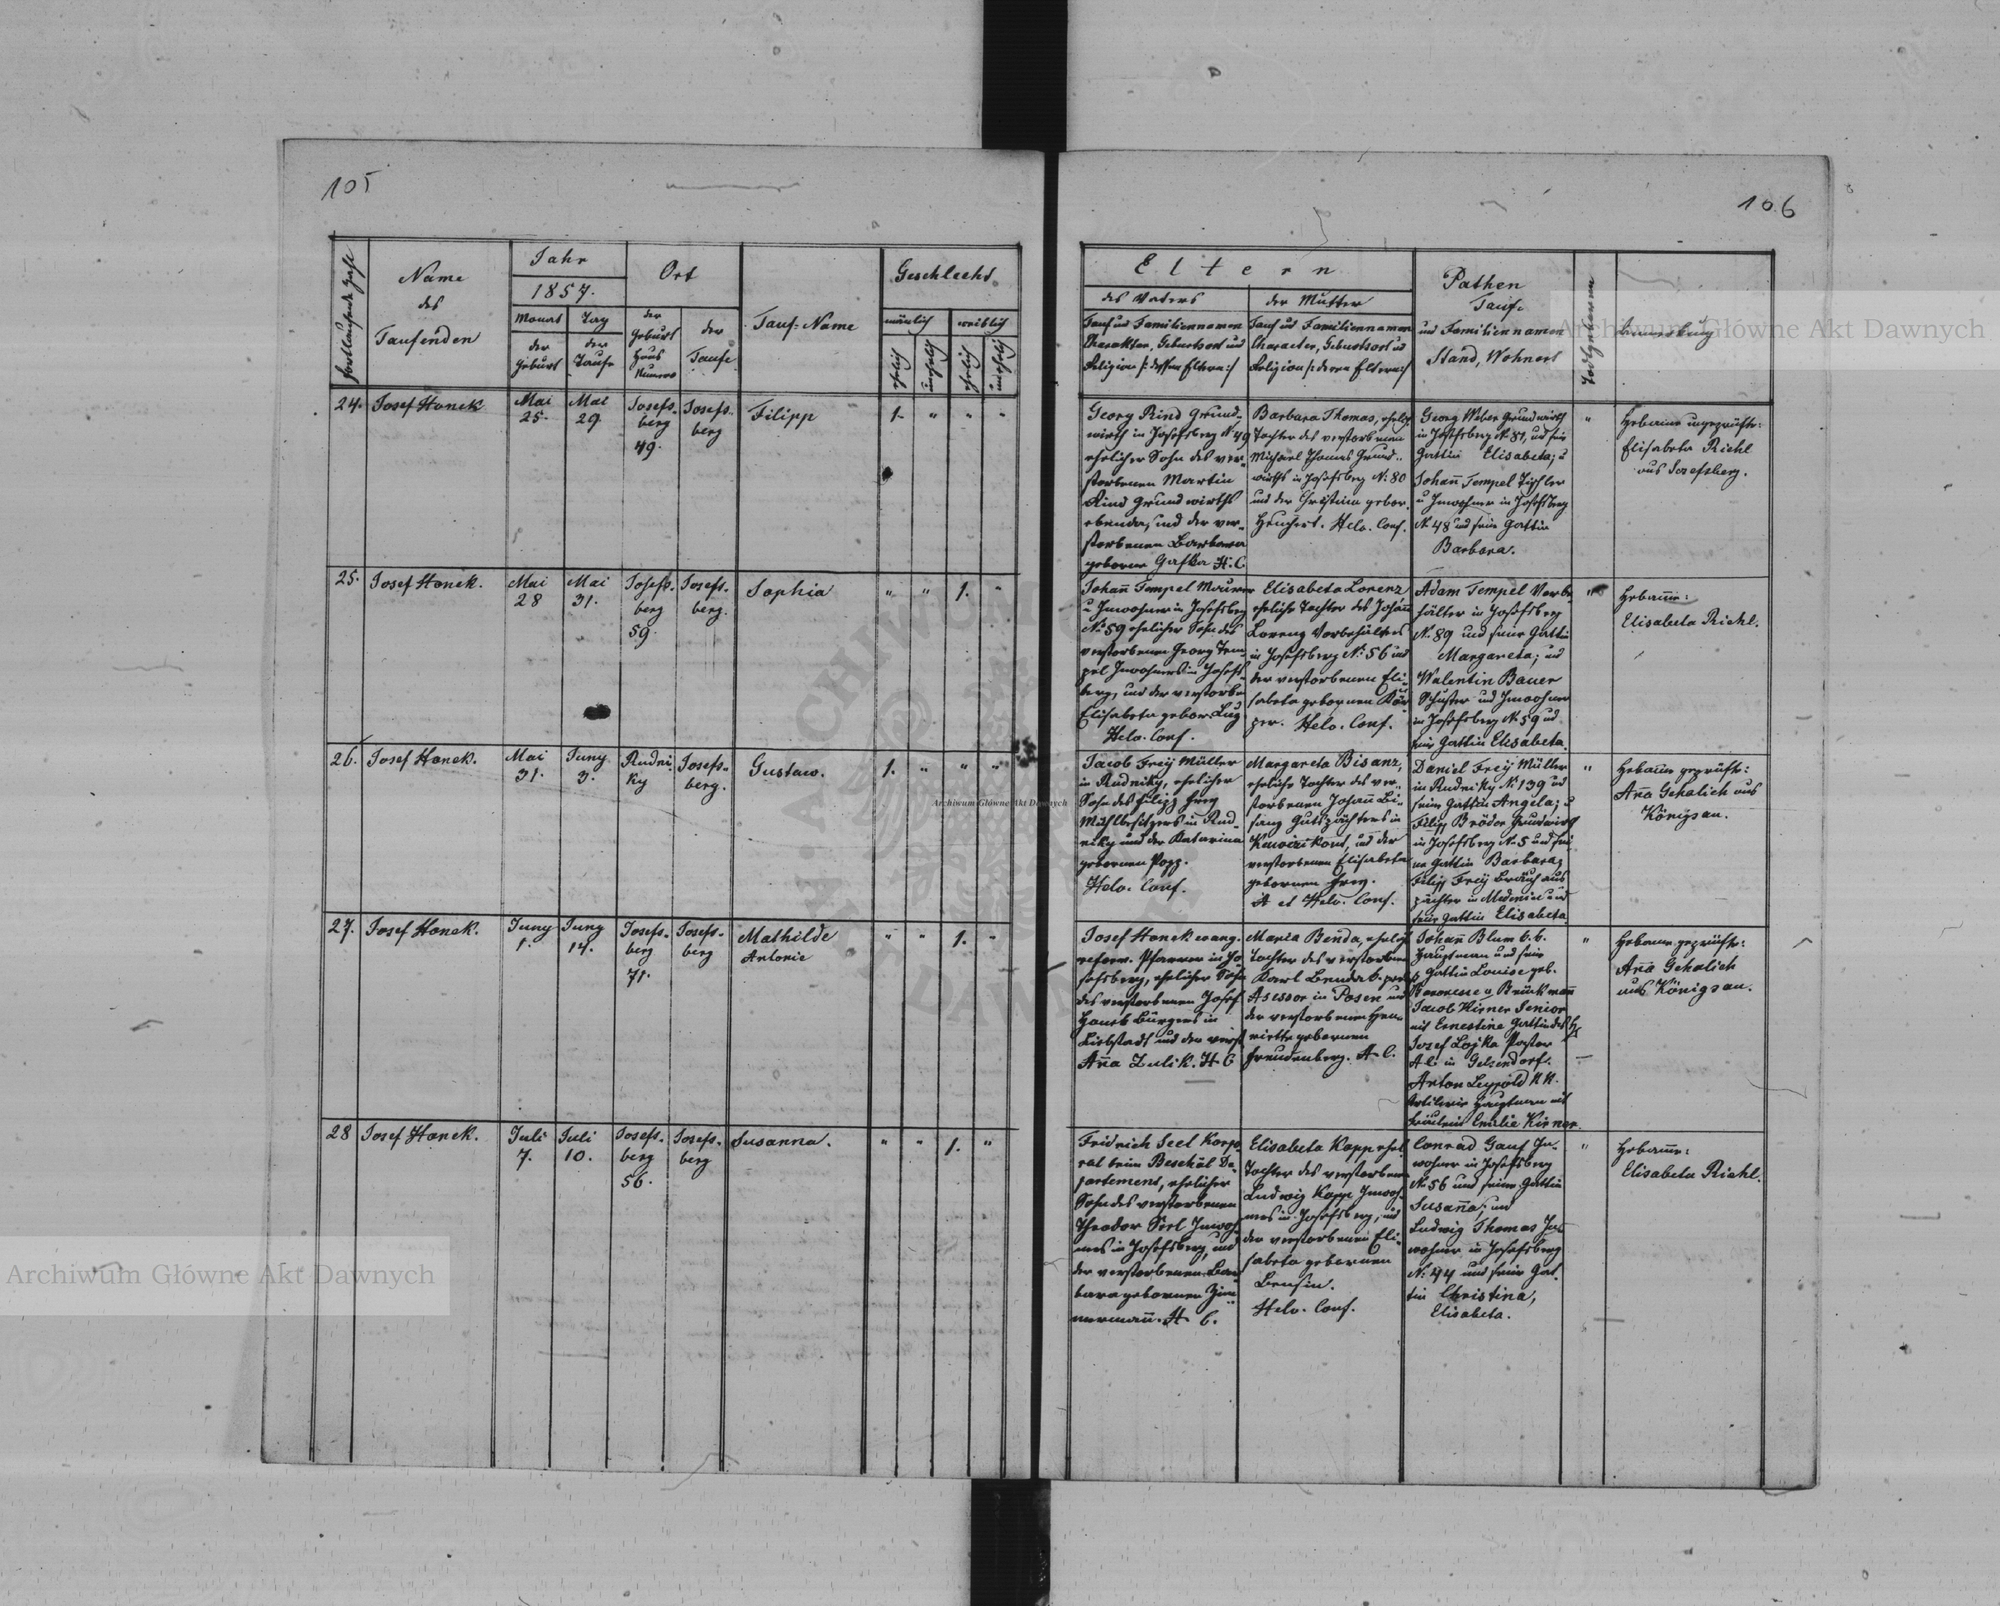 105
106
fortlaufende Zahl
Name
des
Taufenden
Jahr
1857.
Monat
Tag
der
Geburt
der
Taufe
Ort
der
Geburt
Haus
Numero
der
Taufe
Tauf-Name
Geschlecht
mänlich
weiblich
ehelich
unehelich
ehelich
unehelich
Eltern
des Vaters
Tauf und Familiennamen
Charakter, Geburtsort und
Religion /: dessen Eltern :/
der Mutter
Tauf und Familiennamen
Character, Geburtsort und
Religion /: deren Eltern :/
Pathen
Tauf-
und Familiennamen
Stand, Wohnort
Todtgeboren
Anmerkung
24.
Josef Hanek
Mai
25.
Mai
29.
Josefs-
berg
49.
Josefs-
berg
Filipp
1. " " "
Georg Rind Grund-
wirth in Josefsberg N. 49
ehelicher Sohn des ver-
storbenen Martin
Rind Grundwirths
ebenda, und der ver-
storbenen Barbara
geborne Gafka H. C.
Barbara Thomas, ehel.
Tochter des verstorbenen
Michael Thomas Grund-
wirths in Josefsberg N. 80
und der Christina gebor.
Heuchert. Helv. Conf.
Georg Weber Grundwirth
in Josefsberg N. 81, und sein
Gattin Elisabeta; u
Johann Tempel Tischler
u Inwohner in Josefsberg
N. 48 und seine Gattin
Barbara.
"
Hebame ungeprüfte:
Elisabeta Riehl
aus Josefsberg.
25.
Josef Hanek.
Mai
28
Mai
31.
Josefs-
berg
59.
Josefs-
berg.
Sophia
" " 1. "
Johann Tempel Maurer
u Inwohner in Josefsberg
N. 59 ehelicher Sohn des
verstorbenen Georg Tem-
pel Inwohners in Josefs-
berg, und der verstorbe
Elisabeta gebor. Lug
Helv. Conf.
Elisabeta Lorenz
eheliche Tochter des Johann
Lorenz Vorbehälters
in Josefsberg N. 56 und
der verstorbenen Eli-
sabeta gebornen Kör-
per. Helv. Conf.
Adam Tempel Vorbe-
hälter in Josefsberg
N. 89 und seine Gattin
Margareta; und
Walentin Bauer
Schuster und Inwohner
in Josefsberg N. 59 und
seine Gattin Elisabeta.
"
Hebame:
Elisabeta Riehl.
26.
Josef Hanek.
Mai
31.
Juny
3.
Rudni-
ky
Josefs-
berg.
Gustaw.
1. " " "
Jacob Frey Müller
in Rudniky, ehelicher
Sohn des Filipp Frey
Mühlbesitzers in Rud-
niky und der Katarina
gebornen Popp.
Helv. Conf.
Margareta Bisanz,
eheliche Tochter des ver-
storbenen Johann Bi-
sanz Gutspächters in
und der
verstorbenen Elisabeta
gebornen Frey.
A et Helv. Conf.
Daniel Frey Müller
in Rudniky N. 139 und
seine Gattin Angela; u
Filipp Bröder Grundwirth
in Josefsberg N. 5 und sei-
ne Gattin Barbara;
Filipp Frey Bräuhaus
pächter in Medenice und
seine Gattin Elisabeta
"
Hebame geprüfte:
Anna Gehalich aus
Königsau.
27.
Josef Hanek.
Juny
1.
Juny
14.
Josefs-
berg
71.
Josefs-
berg
Mathilde
Antonie
" " 1. "
Josef Hanek evang.
reform. Pfarrer in Jo-
sefsberg, ehelicher Sohn
des verstorbenen Josef
Hanek Bürgers in
Liebstadt und der verst
Anna Zulik. H. C
Maria Benda, ehel.
Tochter des verstorbenen
Karl Benda k. preuß
Asessor in Posen und
der verstorbenen Hen-
riette gebornen
Freudenberg. A. C.
Johann Blum k. k.
Hauptman und sein
Gattin Louise geb.
Baronesse v. Brükmann
Jacob Kirner Senior
mit Ernestine Gattin des
Josef Lojka Pastor
A C. in Gelsendorf.
Anton Leypold K K.
Artilerie Hauptman mit
Fräulein Emilie Kirner.
"
Hebame geprüfte:
Anna Gehalich
aus Königsau.
28
Josef Hanek.
Juli
7.
Juli
10.
Josefs-
berg
56.
Josefs-
berg
Susanna.
" " 1. "
Fridrich Seel Korpo-
ral beim Beschäl De-
partement, ehelicher
Sohn des verstorbenen
Theodor Seel Inwoh-
ners in Josefsberg, und
der verstorbenen Bar-
bara gebornen Zim-
mermann. H. C.
Elisabeta Kopp ehel.
Tochter des verstorbenen
Ludwig Kopp Inwoh-
ners in Josefsberg, und
der verstorbenen Eli-
sabeta gebornen
Bensin.
Helv. Conf.
Conrad Gauf In-
wohner in Josefsberg
N. 56 und seine Gattin
Susanna; und
Ludwig Thomas In-
wohner in Josefsberg
N. 44 und seine Gat-
tin Christina,
Elisabeta.
"
Hebame:
Elisabeta Riehl.
Archiwum Główne Akt Dawnych
Archiwum Główne Akt Dawnych
Archiwum Główne Akt Dawnych